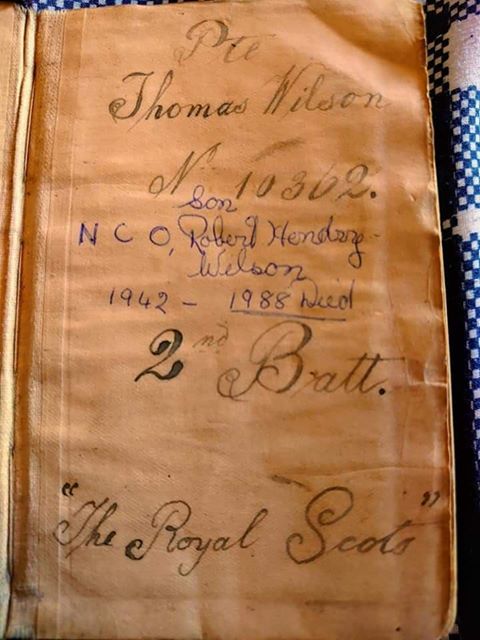 Pte
Thomas Wilson
No 10362.
Son
N C O, Robert Hendry
Wilson
1942 - 1988 Died
2nd Batt.
"The Royal Scots"